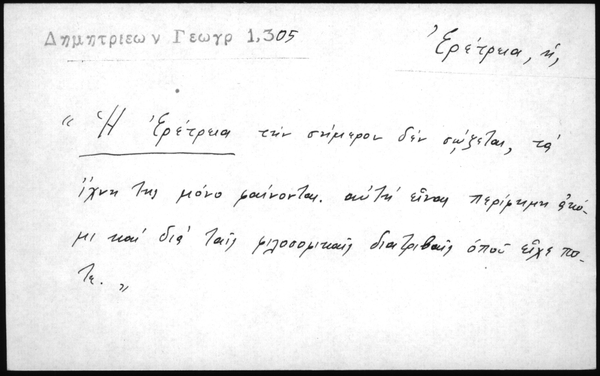 Δημητριεων Γεωγρ 1,305
Ἐρέτρεια, ἡ,
“ Ἡ Ἐρέτρεια τὴν σήμερον δὲν σῴζεται, τὰ
ἴχνη της μόνο φαίνονται. αὐτὴ εἶναι περίφημη ἀκό-
μι καὶ διὰ ταῖς φιλοσοφικαῖς διατριβαῖς ὁποῦ εἶχε πο-
τε. „